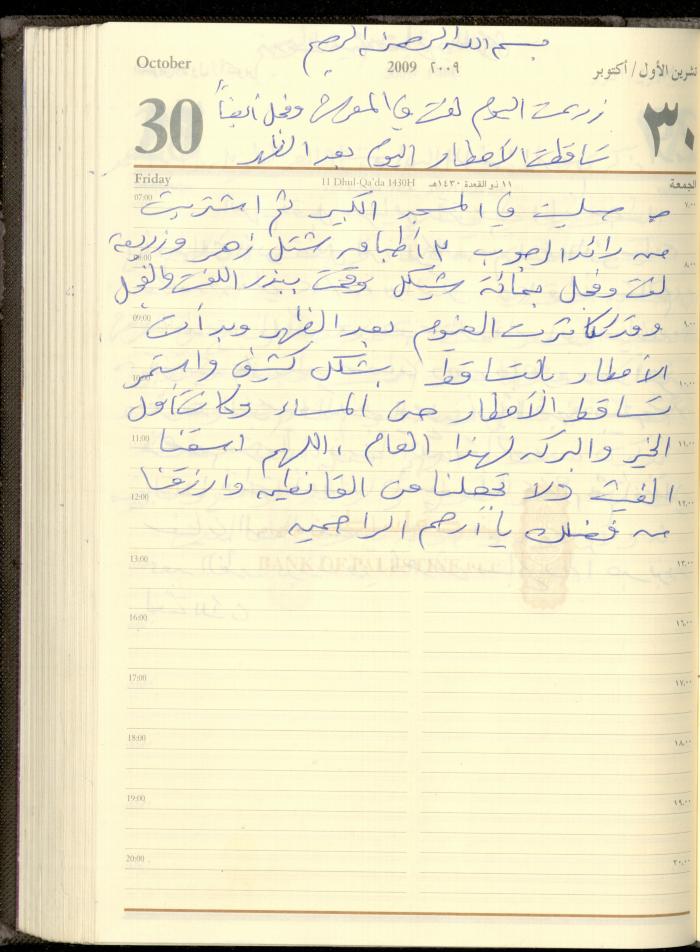 بسم الله الرحمن الرحيم
October
2009 ٢٠٠٩
تشرين الأول / أكتوبر
30
زرعت اليوم لفت في المعرش وفجل أيضاً
تساقطت الأمطار اليوم بعد الظهر
٣٠
Friday
11 Dhul-Qa'da 1430H
١١ ذو القعدة ١٤٣٠هـ
الجمعة
صليت في المسجد الكبير ثم اشتريت
من رائد الرجوب ٣ أطباق شتل زهر وزريعة
لفت وفجل بمائة شيكل وقمت ببذر اللفت والفجل
وقد تكاثرت الغيوم بعد الظهر وبدأت
الأمطار بالتساقط بشكل كثيف واستمر
تساقط الأمطار حتى المساء وكانت أول
الخير والبركه لهذا العام ، اللهم اسقنا
الغيث ولا تجعلنا من القانطين وارزقنا
من فضلك يا أرحم الراحمين
07:00 ٧،٠٠
08:00 ٨،٠٠
09:00 ٩،٠٠
10:00 ١٠،٠٠
11:00 ١١،٠٠
12:00 ١٢،٠٠
13:00 ١٣،٠٠
BANK OF PALESTINE
16:00 ١٦،٠٠
17:00 ١٧،٠٠
18:00 ١٨،٠٠
19:00 ١٩،٠٠
20:00 ٢٠،٠٠